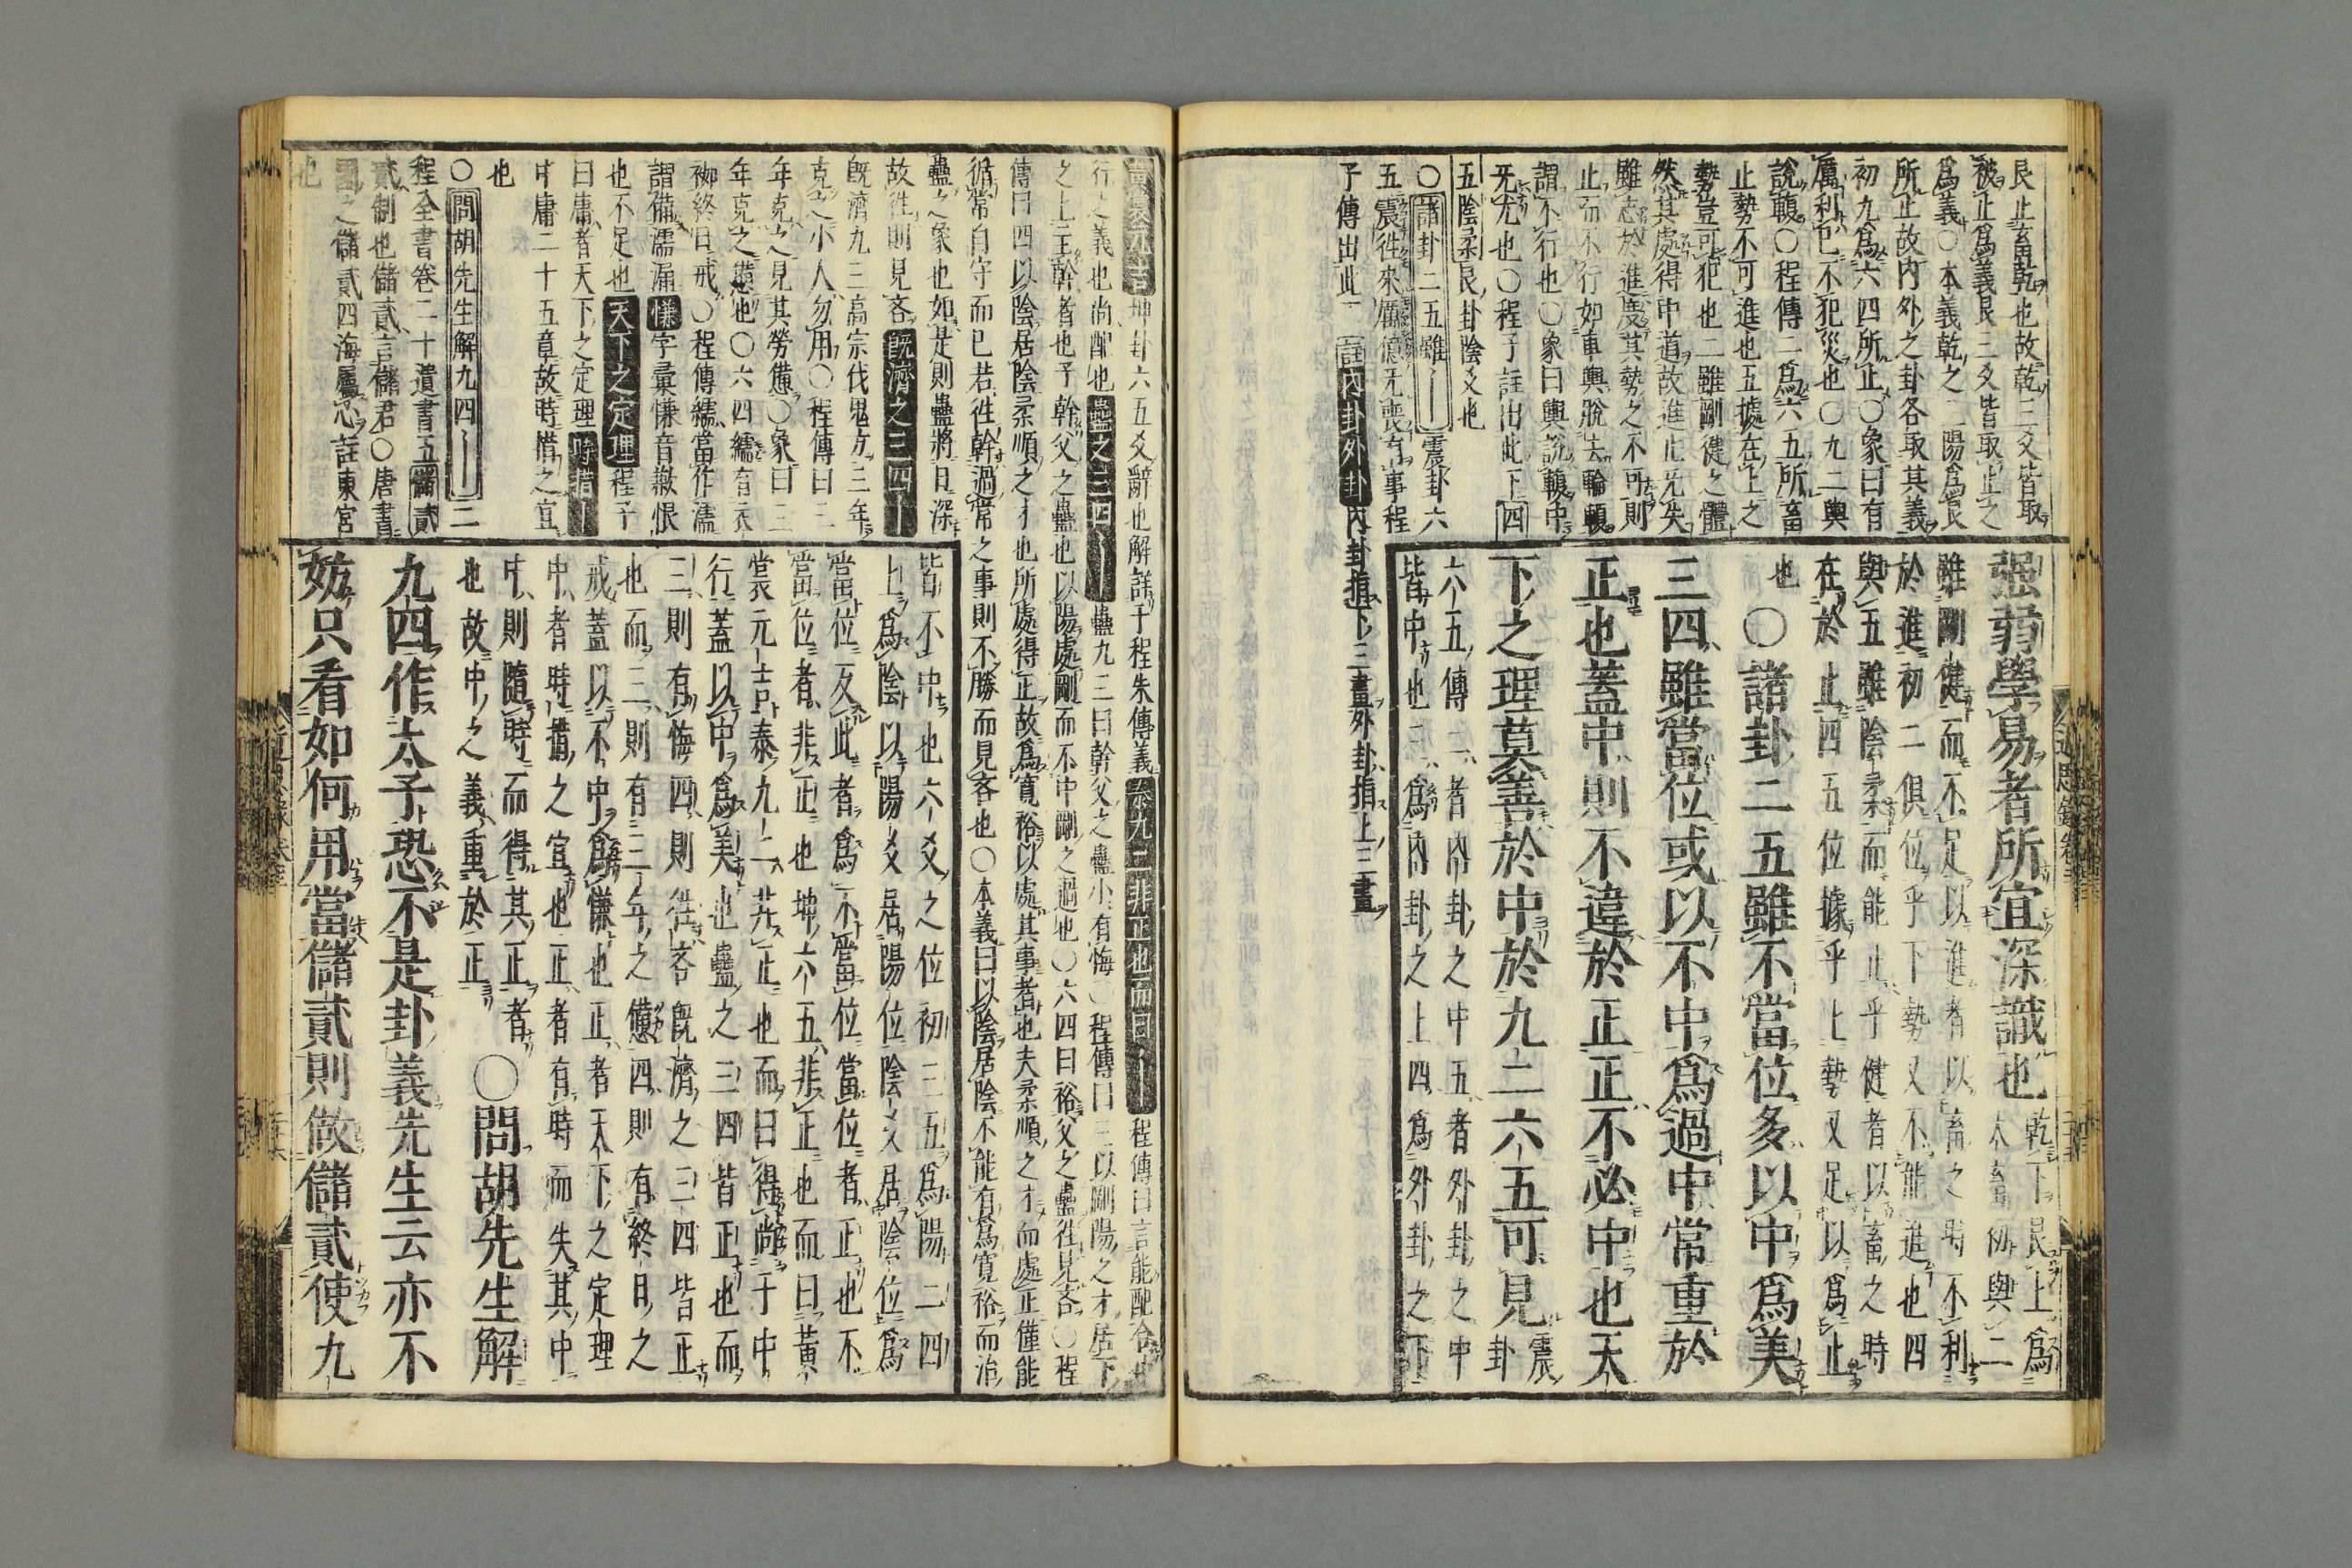 艮止畜乾也故乾三爻皆取
被止爲義艮三爻皆取止之
爲義○本義乾之三陽爲艮
所止故内外之卦各取其義
初九爲六四所止○象曰有
厲利已不犯災也○九二輿
說輹○程傳二爲六五所畜
止勢不可進也五據在上之
勢豈可犯也二雖剛健之體
然其處得中道故進止无失
雖志於進度其勢之不可則
止而不行如車輿脫去輪輹
謂不行也○象曰輿說輹中
无尤也○程子註出此下四
五陰柔艮卦陰爻也
○諸卦二五雖 震卦六
五震往來厲億无喪有事程
子傳出此 註内卦外卦内卦指下三畫外卦指上三畫
强弱學易者所宜深識也 乾下艮上爲
大畜初與二
雖剛健而不足以進者以畜之時不利
於進初二俱位乎下勢又不能進也四
與五雖陰柔而能止乎健者以畜之時
在於止四五位據乎上勢又足以爲止
也○諸卦二五雖不當位多以中爲美
三四雖當位或以不中爲過中常重於
正也蓋中則不違於正正不必中也天
下之理莫善於中於九二六五可見 震
卦
六五傳二者内卦之中五者外卦之中
皆中也三爲内卦之上四爲外卦之下
黄裳元吉坤卦六五爻辭也解詳于程朱傳義泰九二非正也而曰 程傳曰言能配合中
行之義也尚配也蠱之三四 蠱九三曰幹父之蠱小有悔○程傳曰三以剛陽之才居下
之上主幹者也子幹父之蠱也以陽處剛而不中剛之過也○六四曰裕父之蠱往見吝○程
傳曰四以陰居陰柔順之才也所處得正故爲寬裕以處其事者也夫柔順之才而處正僅能
循常自守而已若往幹過常之事則不勝而見吝也○本義曰以陰居陰不能有爲寬裕而治
蠱之象也如是則蠱將日深
故往則見吝既濟之三四
既濟九三高宗伐鬼方三年
克之小人勿用○程傳曰三
年克之見其勞憊○象曰三
年克之憊也○六四繻有衣
袽終日戒○程傳繻當作濡
謂備濡漏慊字彙慊音歉恨
也不足也天下之定理程子
曰庸者天下之定理時措
中庸二十五章故時措之宜
也
○問胡先生解九四 二
程全書卷二十遺書五儲貳
貳制也儲貳言儲君○唐書
國之儲貳四海屬心註東宮
也
皆不中也六爻之位初三五爲陽二四
上爲陰以陽爻居陽位陰爻居陰位爲
當位反此者爲不當位當位者正也不
當位者非正也坤六五非正也而曰黄
裳元吉泰九二非正也而曰得尚于中
行蓋以中爲美也蠱之三四皆正也而
三則有悔四則往吝既濟之三四皆正
也而三則有三年之憊四則有終日之
戒蓋以不中爲慊也正者天下之定理
中者時措之宜也正者有時而失其中
中則隨時而得其正者
也故中之義重於正 ○問胡先生解
九四作太子恐不是卦義先生云亦不
妨只看如何用當儲貳則做儲貳使九